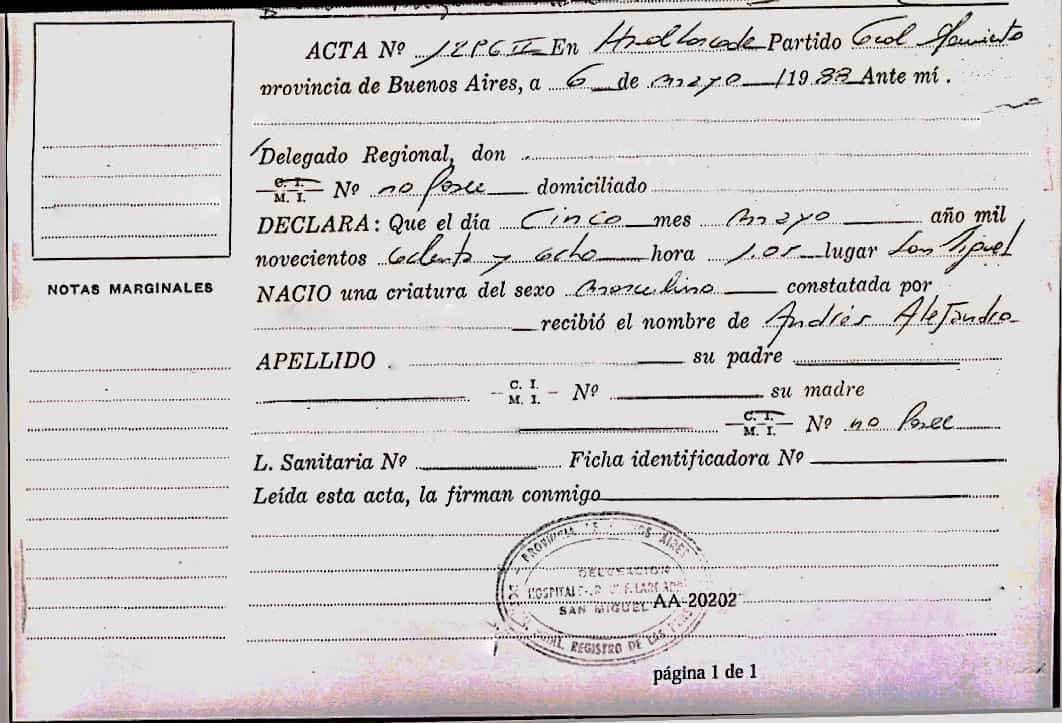 ACTA Nº 12PG II En Partido Gral Sarmiento
provincia de Buenos Aires, a 6 de mayo /1988 Ante mí .
Delegado Regional, don
C. I.
M. I. Nº no Posee domiciliado
DECLARA: Que el día Cinco mes mayo año mil
novecientos ochenta y ocho hora 1.05 lugar San Miguel
NACIO una criatura del sexo masculino constatada por
NOTAS MARGINALES
recibió el nombre de Andrés Alejandro
APELLIDO su padre
C. I.
M. I. Nº su madre
C. I.
M. I. Nº no Posee
L. Sanitaria Nº Ficha identificadora Nº
Leída esta acta, la firman conmigo
DELEGACION
SAN MIGUEL AA-20202
REGISTRO DE LAS
página 1 de 1